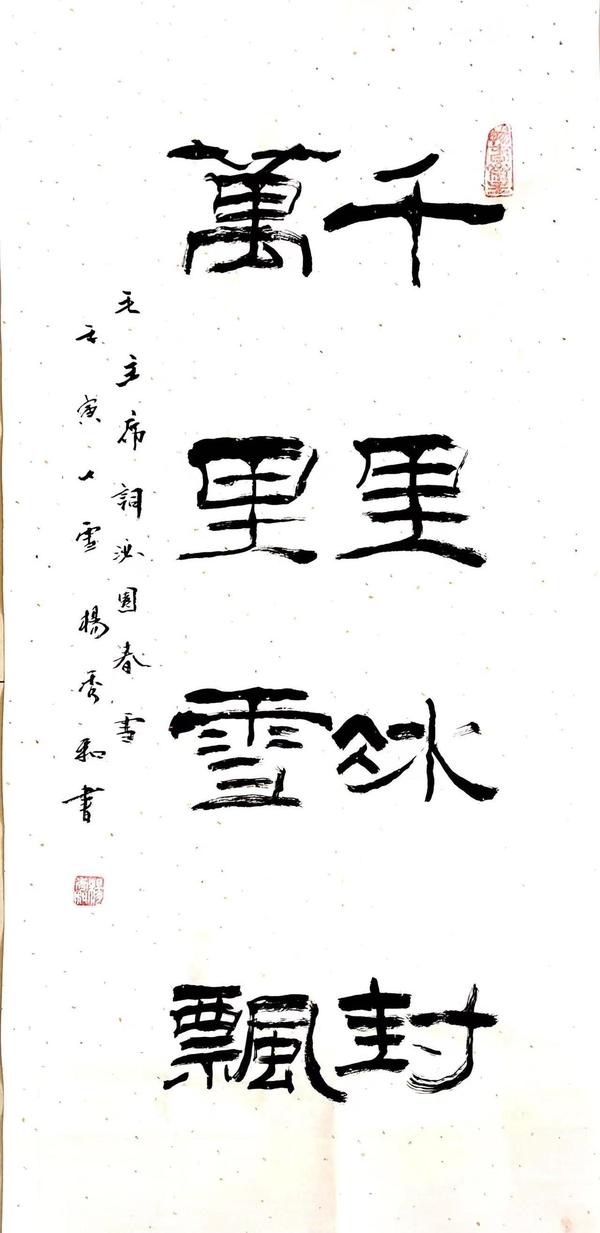 千里冰封
萬里雪飄
毛主席詞沁園春雪
壬寅大雪楊秀和書